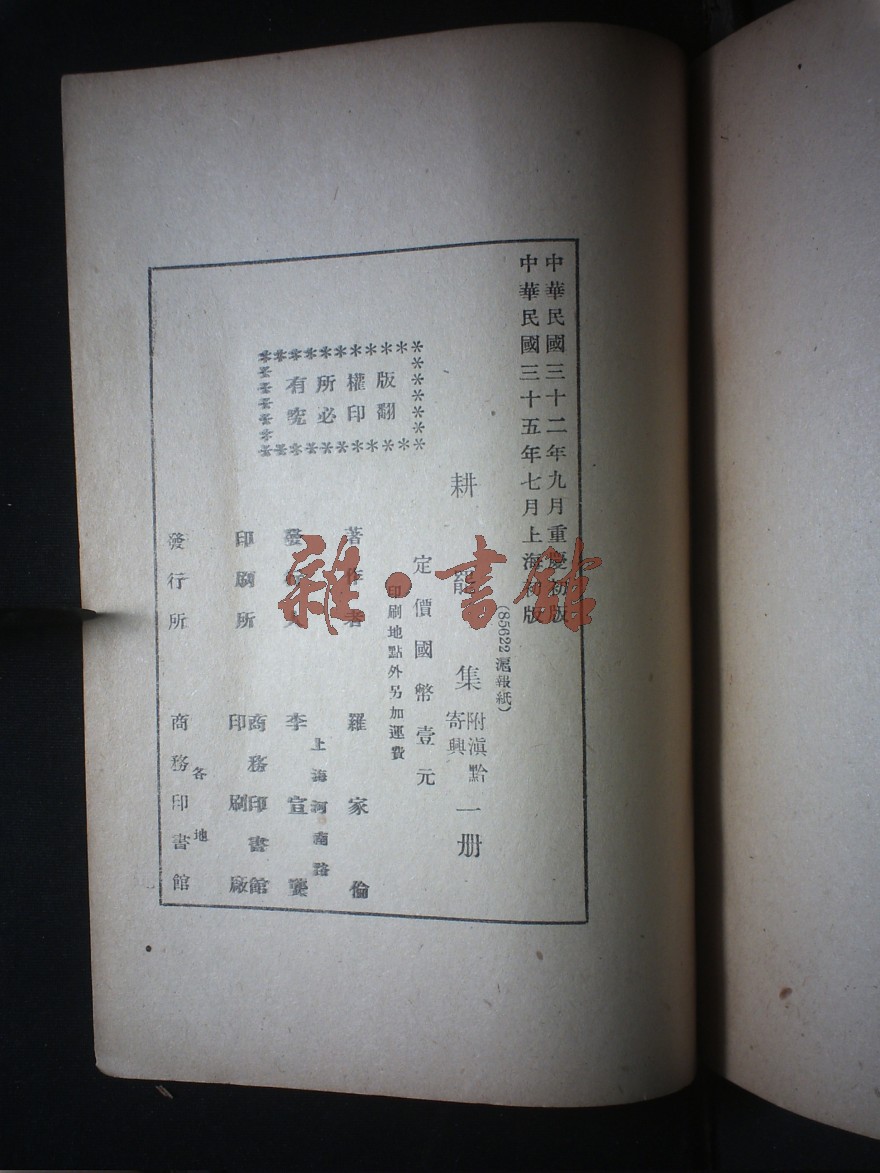 中華民國三十二年九月重慶初版
中華民國三十五年七月上海初版
(85622 滬報紙)
耕罷集 附滇黔寄興 一册
定價國幣壹元
印刷地點外另加運費
版權所有
翻印必究
著作者 羅家倫
發行人 李宣龔
上海河南路
印刷所 商務印書館印刷廠
各地
發行所 商務印書館
雜·書館